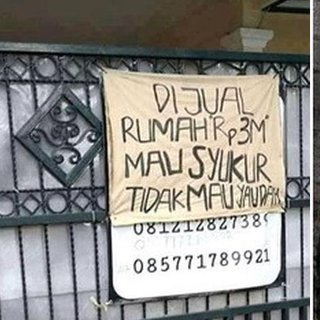 DIJUAL
RUMAH Rp 3M
MAU SYUKUR
TIDAK MAU YAUDAH
081212827389
085771789921